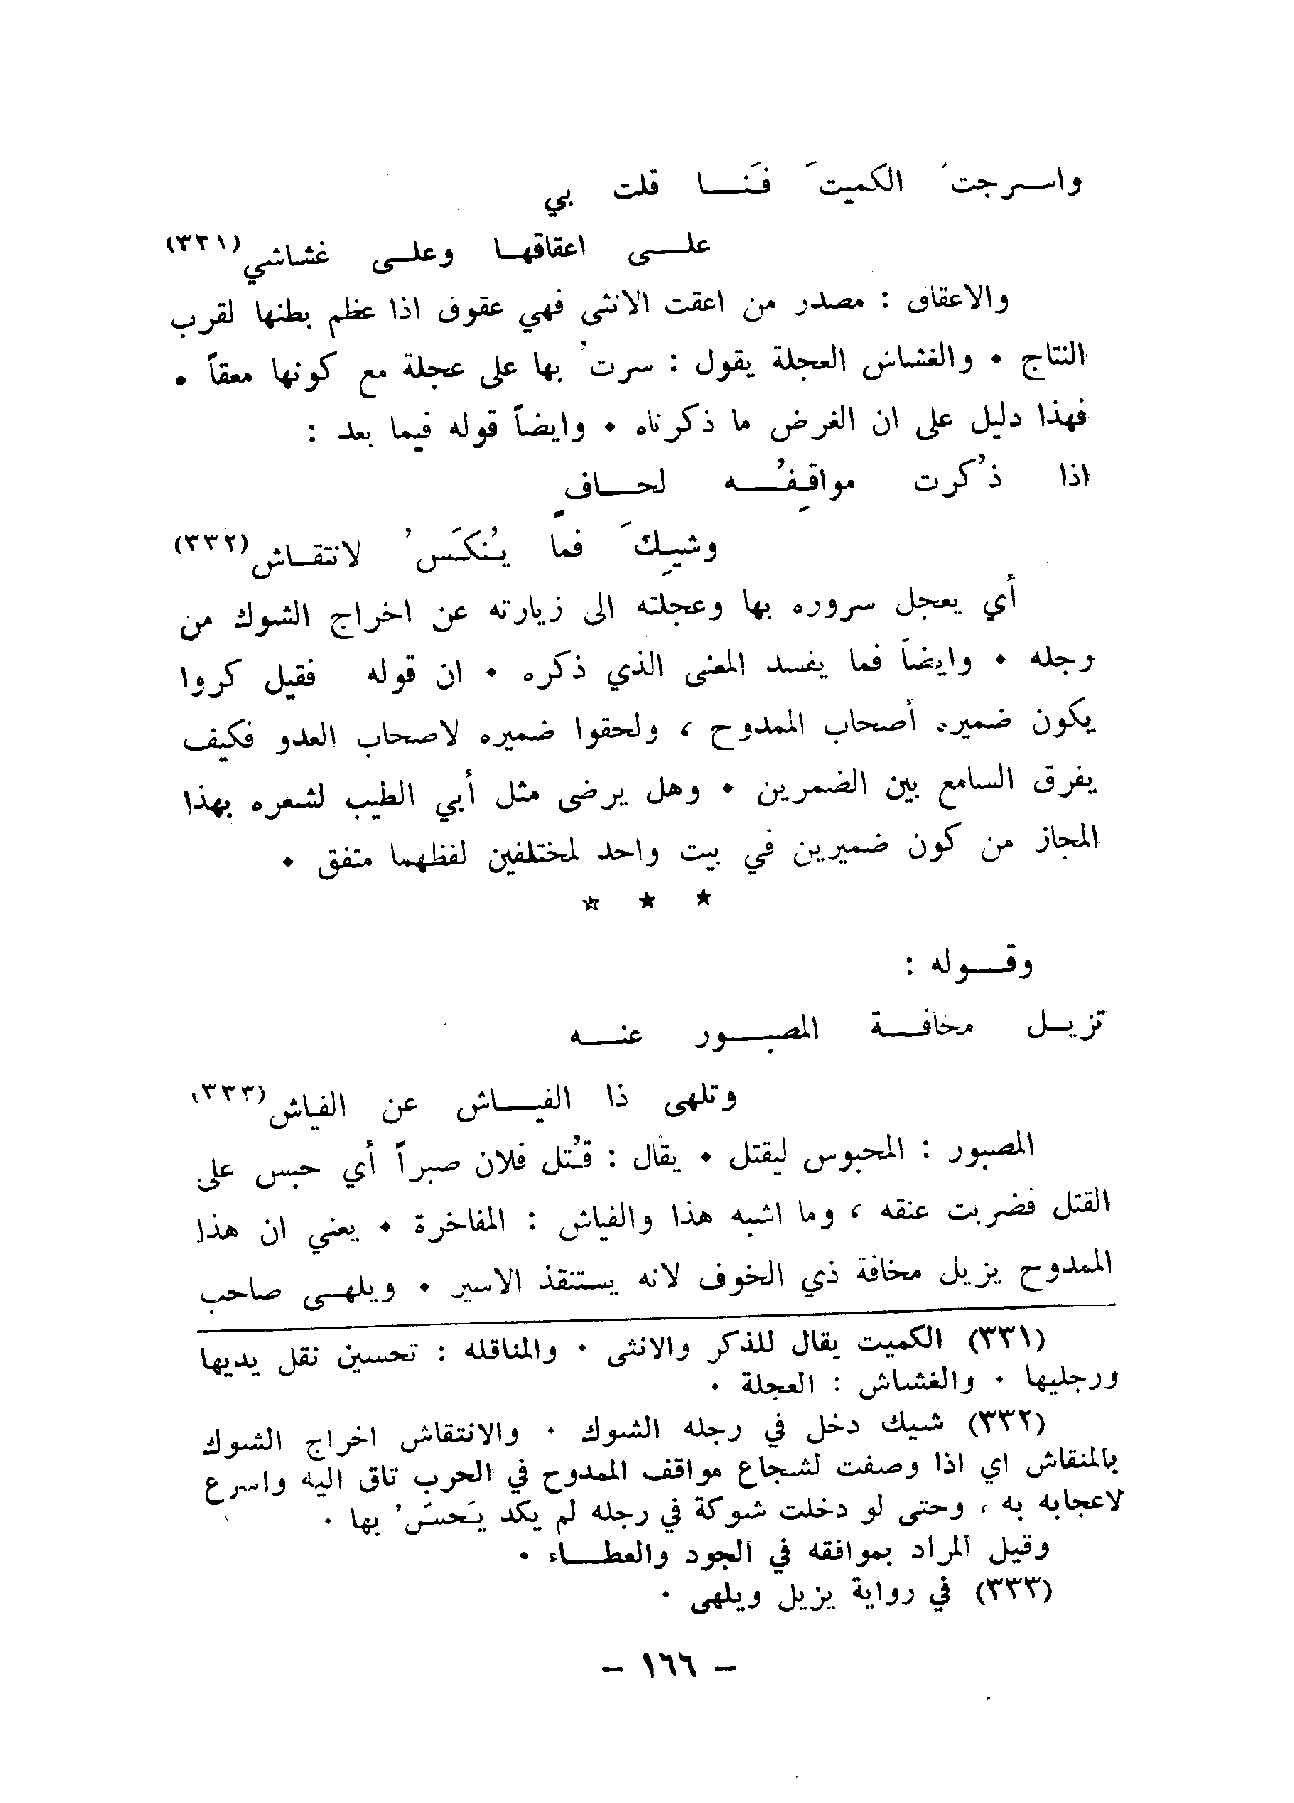 واسرجت الكميتَ فَنَا قلت بي
علـى اعقاقها وعلـى غشاشي(٣٣١)
والاعقاق : مصدر من اعقت الانثى فهي عقوق اذا عظم بطنها لقرب
النتاج • والغشاش العجلة يقول : سرتُ بها على عجلة مع كونها معقاً •
فهذا دليل على ان الغرض ما ذكرناه • وايضاً قوله فيما بعد :
اذا ذُكرت مواقِفُـه لحـافٍ
وشيِكَ فما يُنكَسُ لانتقـاش(٣٣٢)
أي يعجل سروره بها وعجلته الى زيارته عن اخراج الشوك من
رجله • وايضاً فما يفسد المعنى الذي ذكره • ان قوله فقيل كروا
يكون ضميره أصحاب الممدوح ، ولحقوا ضميره لاصحاب العدو فكيف
يفرق السامع بين الضمرين • وهل يرضى مثل أبي الطيب لشعره بهذا
المجاز من كون ضميرين في بيت واحد لمختلفين لفظهما متفق •
★ ★ ☆
وقـوله :
تزيـل مخافـة المصبـور عنـه
وتلهى ذا الفيـاش عن الفياش(٣٣٣)
المصبور : المحبوس ليقتل • يقال : قُتل فلان صبراً أي حبس على
القتل فضربت عنقه ، وما اشبه هذا والفياش : المفاخرة • يعني ان هذا
الممدوح يزيل مخافة ذي الخوف لانه يستنقذ الاسير • ويلهـى صاحب
(٣٣١) الكميت يقال للذكر والانثى • والمناقله : تحسين نقل يديها
ورجليها • والغشاش : العجلة •
(٣٣٢) شيك دخل في رجله الشوك • والانتقاش اخراج الشوك
بالمنقاش اي اذا وصفت لشجاع مواقف الممدوح في الحرب تاق اليه واسرع
لاعجابه به ، وحتى لو دخلت شوكة في رجله لم يكد يَحسَسُ بها •
وقيل المراد بموافقه في الجود والعطـاء •
(٣٣٣) في رواية يزيل ويلهى •
- ١٦٦ -